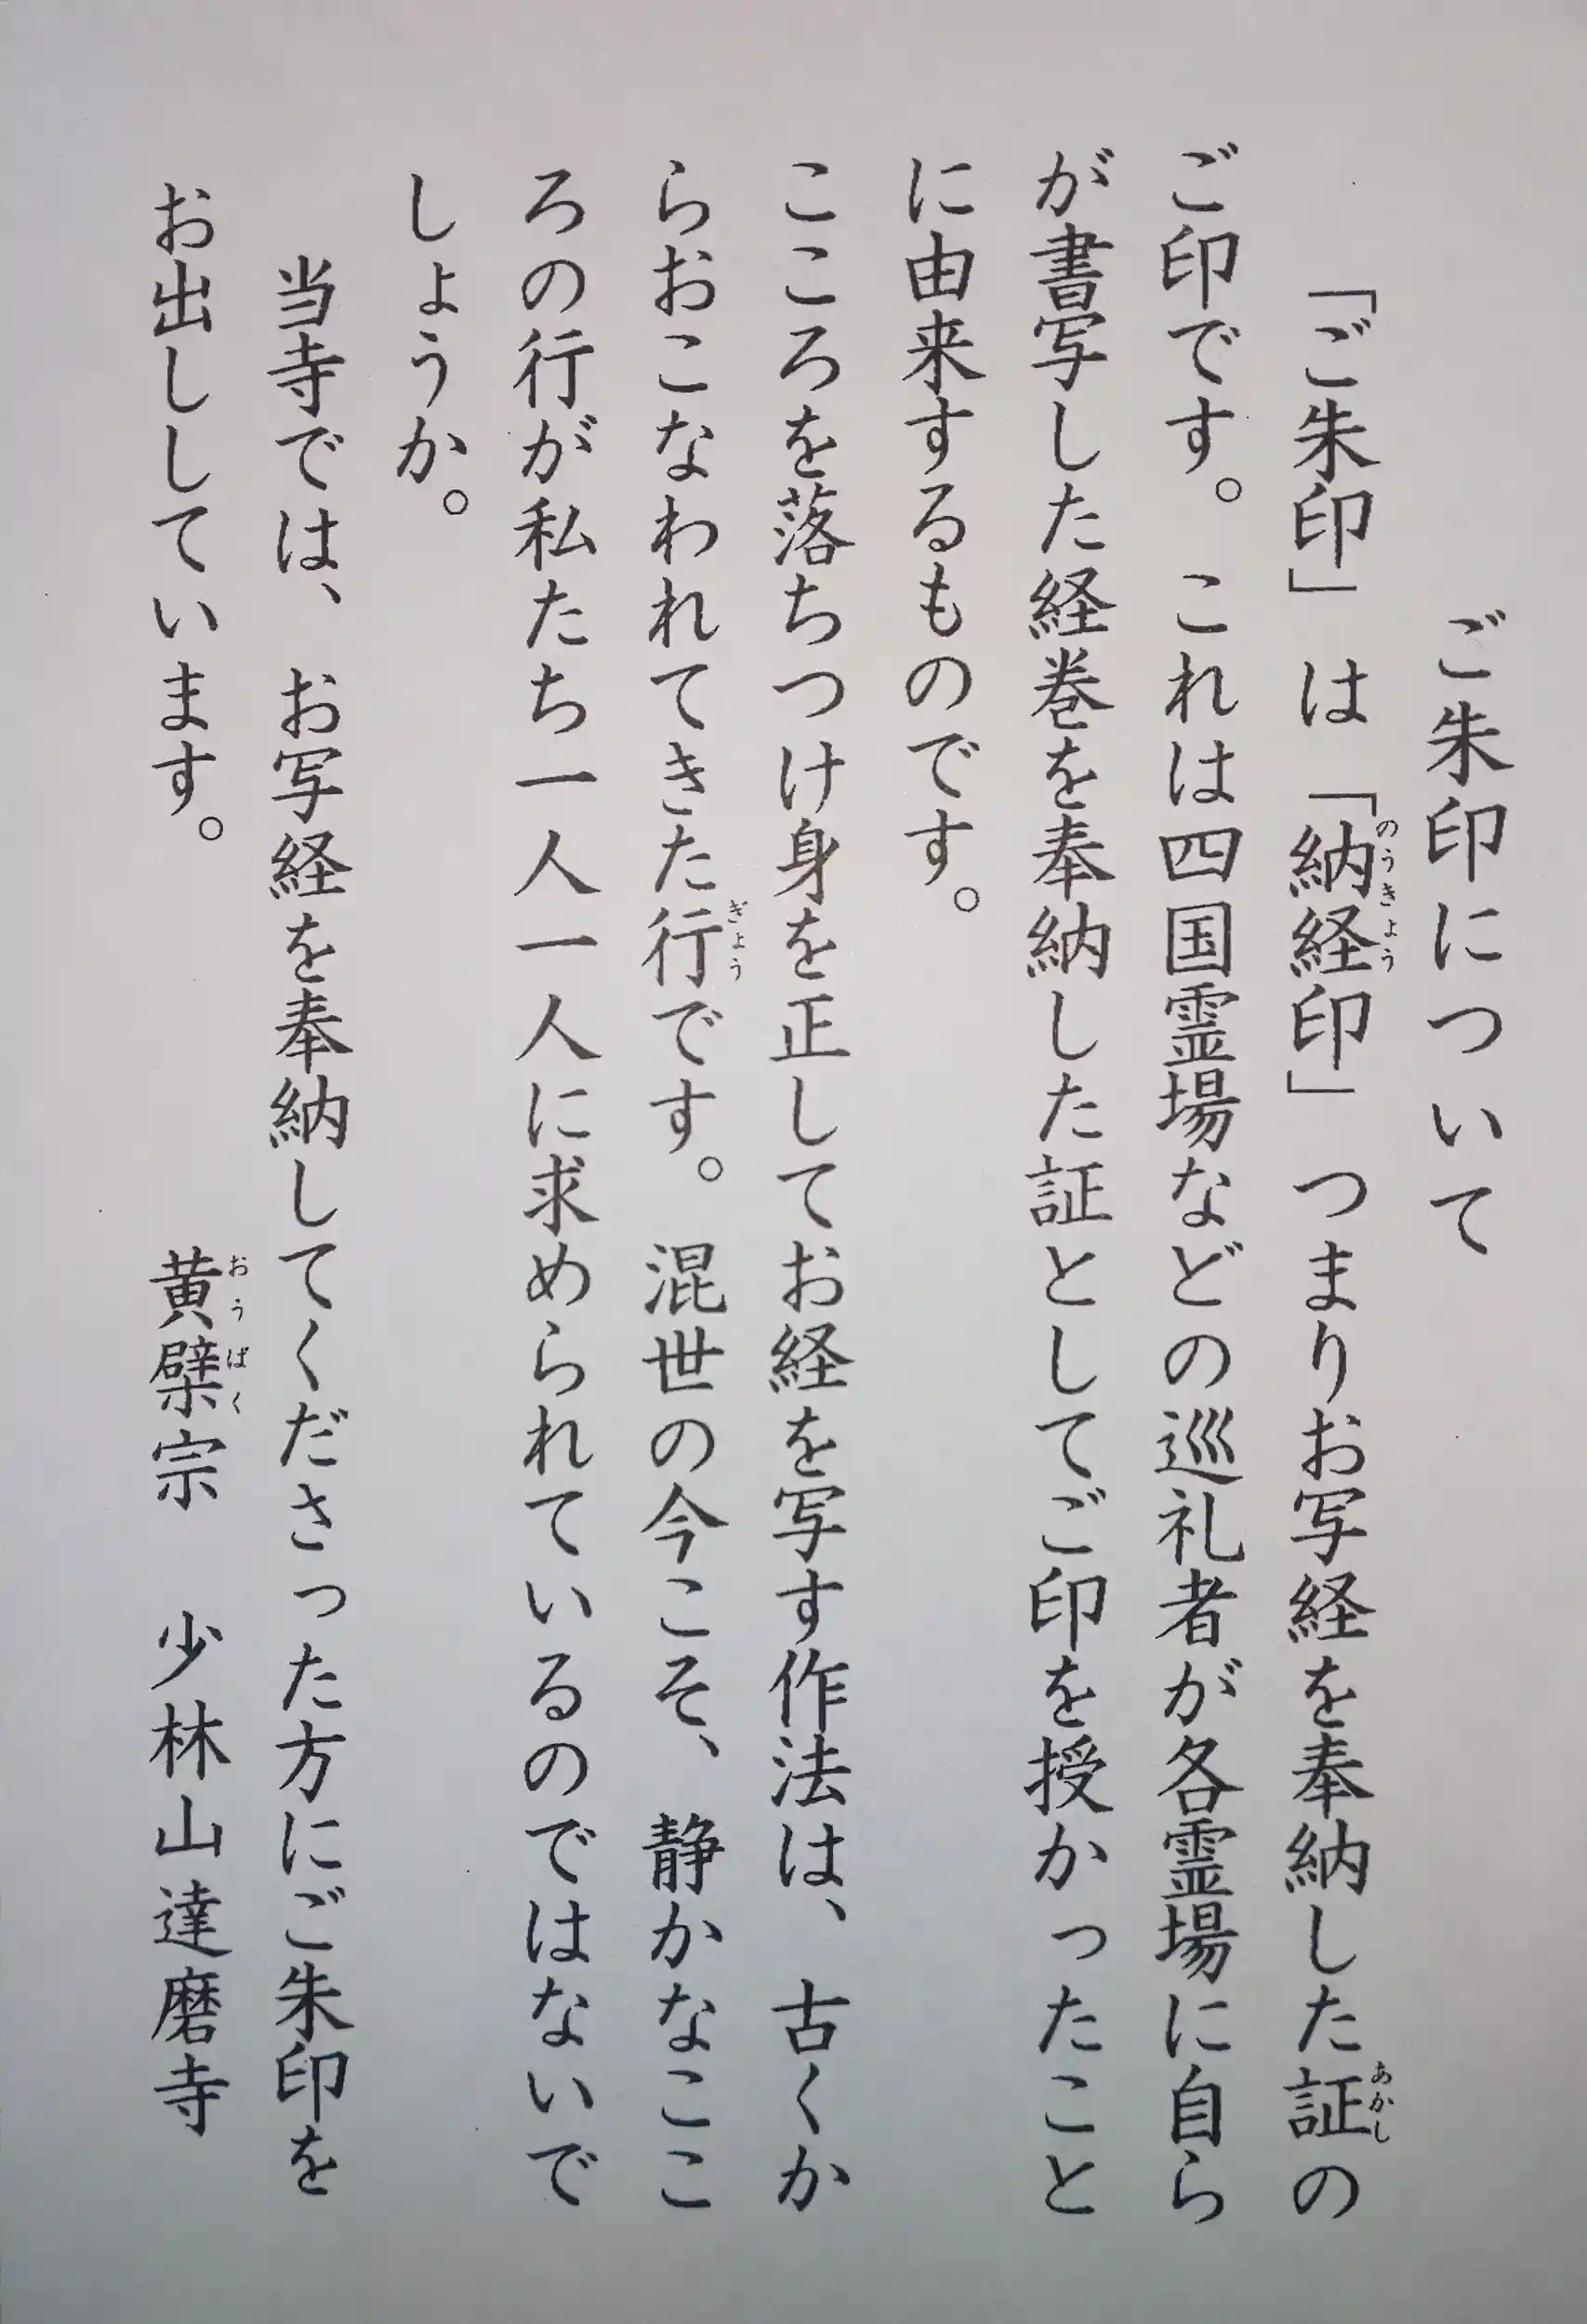 ご朱印について
「ご朱印」は「納経印」つまりお写経を奉納した証の
ご印です。これは四国霊場などの巡礼者が各霊場に自ら
が書写した経巻を奉納した証としてご印を授かったこと
に由来するものです。
こころを落ちつけ身を正してお経を写す作法は、古くか
らおこなわれてきた行です。混世の今こそ、静かなここ
ろの行が私たち一人一人に求められているのではないで
しょうか。
当寺では、お写経を奉納してくださった方にご朱印を
お出ししています。
黄檗宗 少林山達磨寺
のうきょう
あかし
ぎょう
おうばく